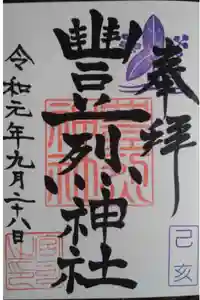 奉拝
己亥
豐烈神社
令和元年九月二十八日